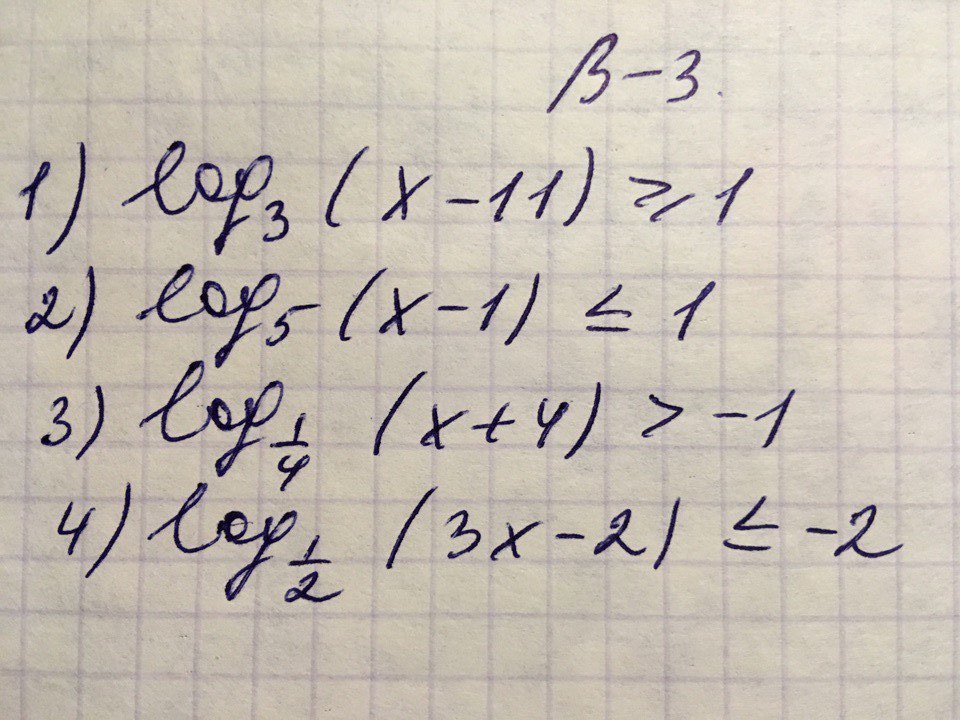 В-3.
1) log₃ (x-11) ≥ 1
2) log₅ (x-1) ≤ 1
3) log_{1/4} (x+4) > -1
4) log_{1/2} (3x-2) ≤ -2